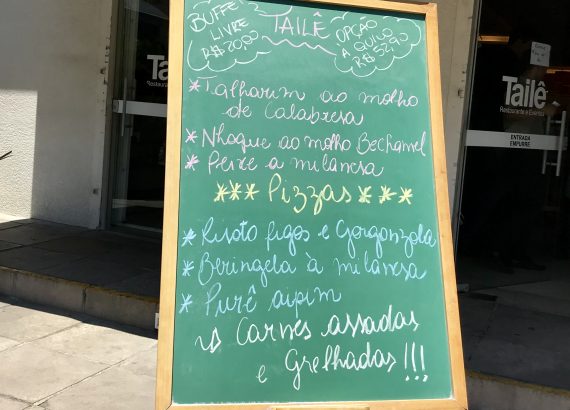 BUFFE
LIVRE
R$20,00
TAILÊ
OPÇÃO
A QUILO
R$52,90
* Talharim ao molho
de Calabresa
* Nhoque ao molho Bechamel
* Peixe a milanesa
*** Pizzas ***
* Risoto figos e Gorgonzola
* Beringela à milanesa
* Purê aipim
Carnes assadas
e Grelhadas!!!
Tailê
Restaurante
Tailê
Restaurante e Eventos
ENTRADA
EMPURRE